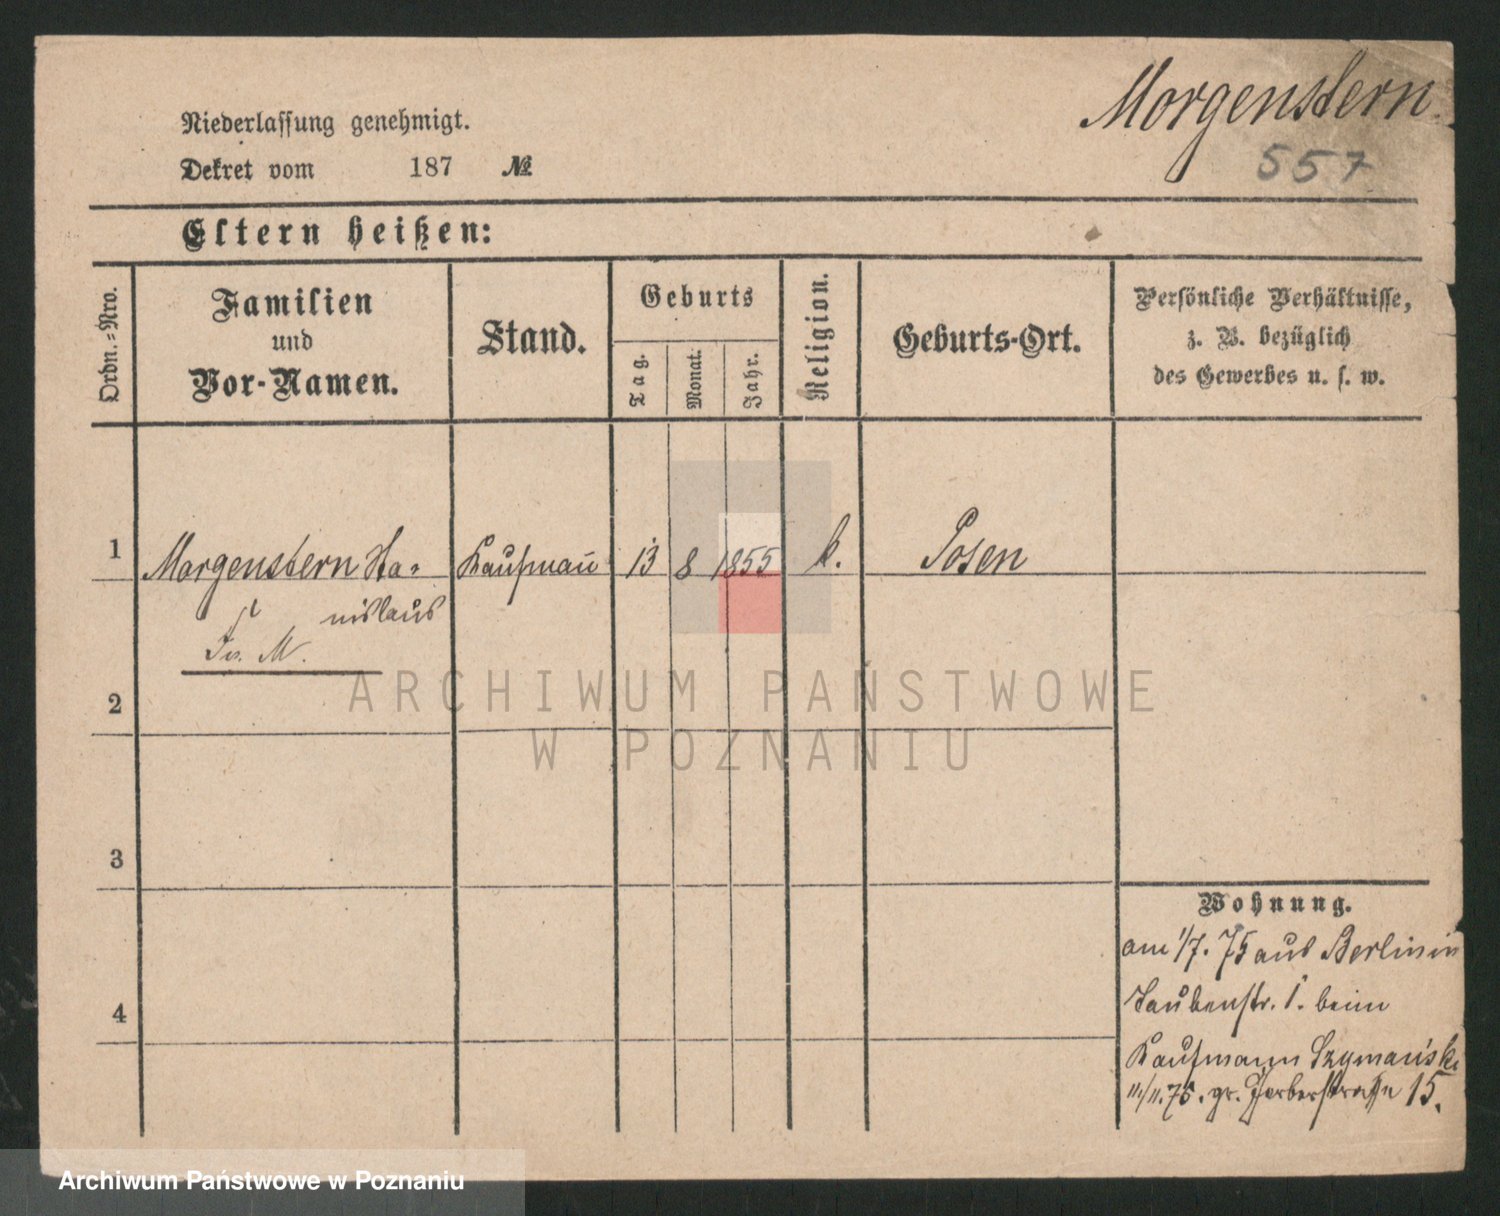 Morgenstern.
557
Niederlassung genehmigt.
Dekret vom 187 №
Eltern heißen:
Ordn.-Nro.
Familien
und
Vor-Namen.
Stand.
Geburts
Tag.
Monat.
Jahr.
Religion.
Geburts-Ort.
Persönliche Verhältnisse,
z. B. bezüglich
des Gewerbes u. s. w.
1 Morgenstern Sta- Kaufmañ 13 8 1855 k. Posen
nislaus
M.
2
3
4
ARCHIWUM PAŃSTWOWE
W POZNANIU
Wohnung.
am 1/7. 75 aus Berlin in
Taubenstr. 1. beim
Kaufmann Szymański
11/11.75. gr. Gerberstraße 15.
Archiwum Państwowe w Poznaniu